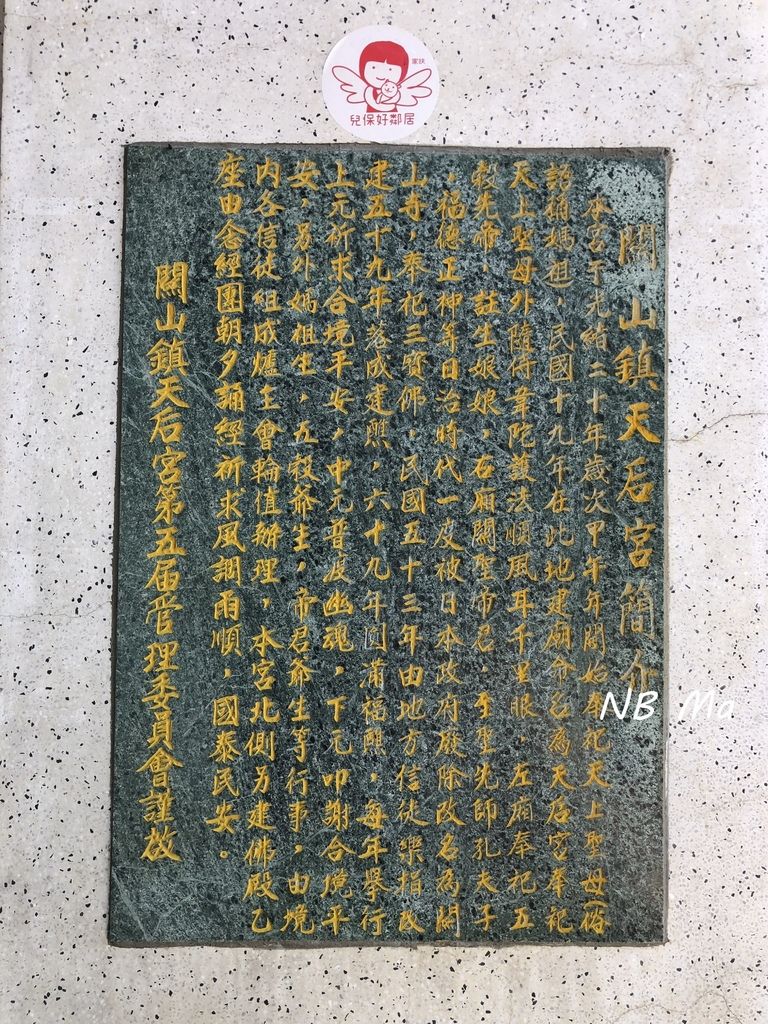 家扶
兒保好鄰居
關山鎮天后宮簡介
本宮于光緒二十年歲次甲午年開始奉祀天上聖母(俗
語稱媽祖,民國十九年在此地建廟命名為天后宮奉祀
天上聖母外隨侍韋陀護法順風耳千里眼,左廂奉祀五
穀先帝,註生娘娘,右廂關聖帝君,至聖先師孔夫子
,福德正神等日治時代一度被日本政府廢除改名為關
山寺,奉祀三寶佛,民國五十三年由地方信徒樂捐改
建五十九年落成建醮,六十九年圓滿福醮,每年舉行
上元祈求合境平安,中元普渡幽魂,下元叩謝合境平
安,另外媽祖生,五穀爺生,帝君爺生等行事,由境
內各信徒組成爐主會輪值辦理,本宮北側另建佛殿乙
座由念經團朝夕誦經祈求風調雨順,國泰民安。
關山鎮天后宮第五屆管理委員會謹啟
NB Ma